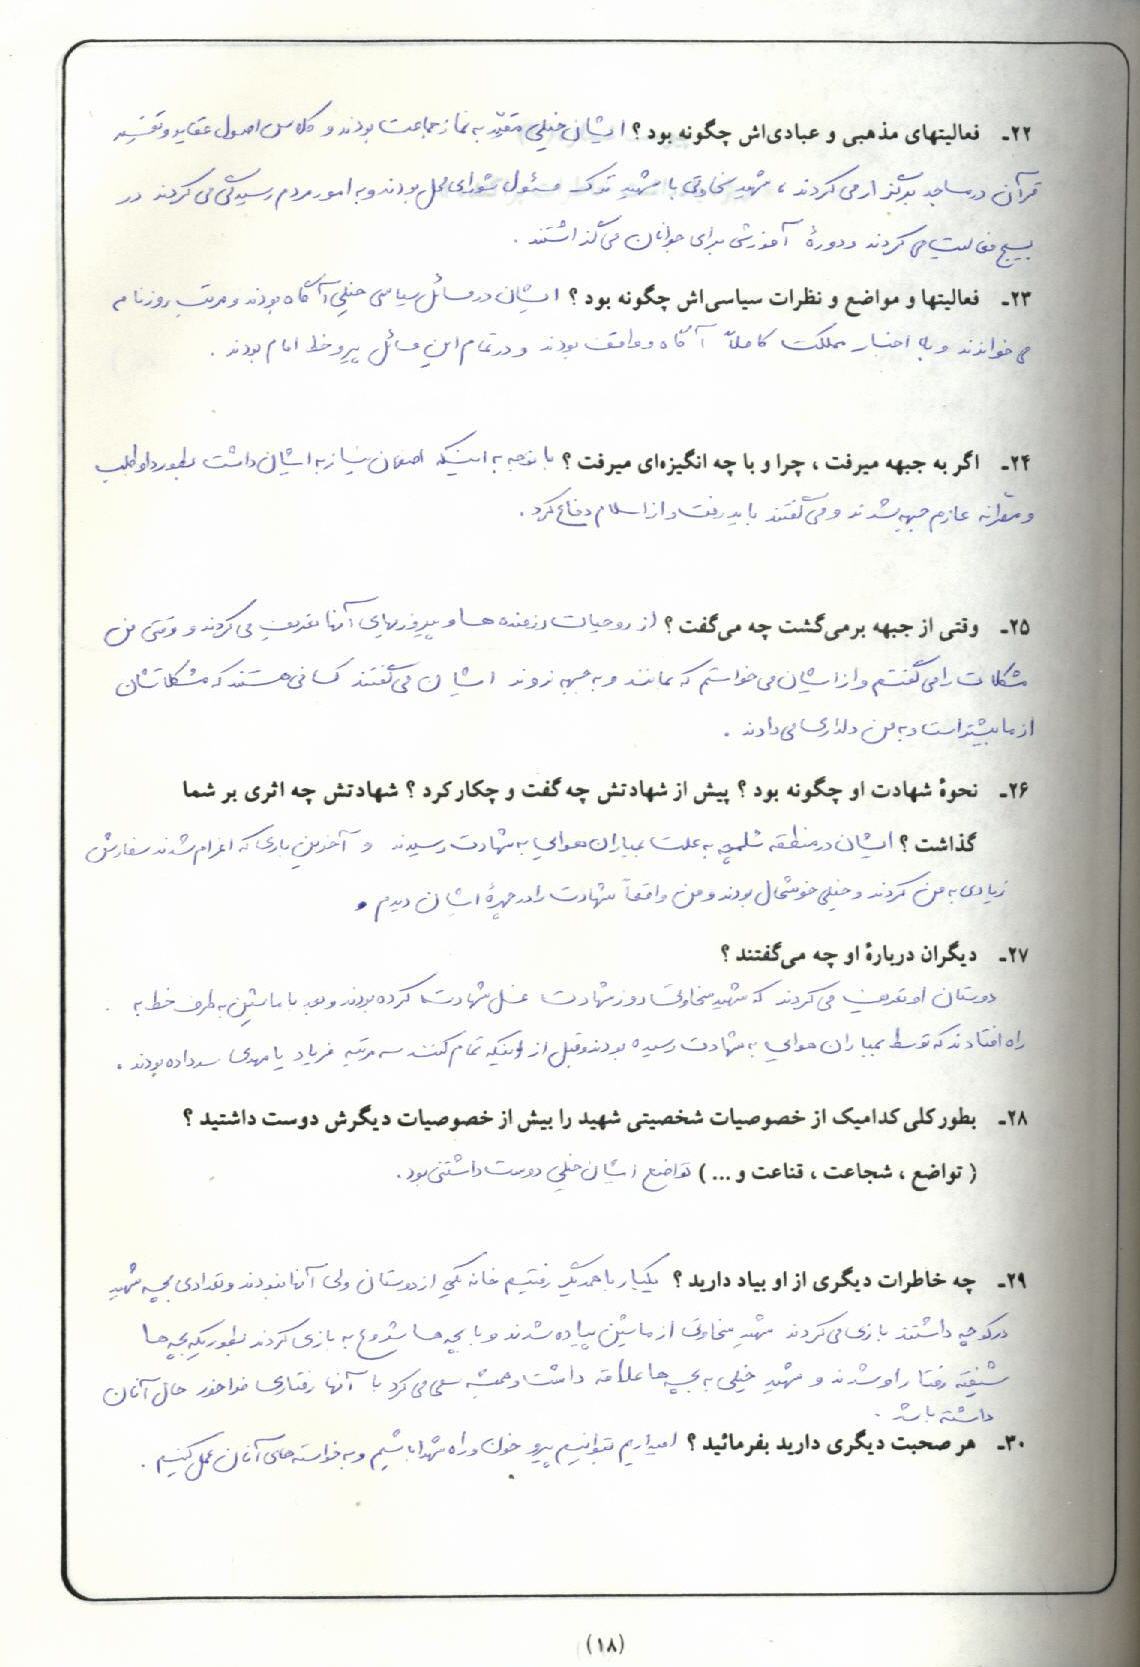 ۲۲ـ فعالیتهای مذهبی و عبادی‌اش چگونه بود ؟ ایشان خیلی مقید به نماز جماعت بودند و کلاس اصول عقاید و تفسیر
قرآن در مساجد برگزار می کردند ، شهید سخاوتی با شهید مسئول شورای محل بودند و به امور مردم رسیدگی می کردند در
بسیج فعالیت می کردند و دورهٔ آموزشی برای جوانان می گذاشتند .
۲۳ـ فعالیتها و مواضع و نظرات سیاسی‌اش چگونه بود ؟ ایشان در مسائل سیاسی خیلی آگاه بودند و مرتب روزنامه
می خواندند و به اخبار مملکت کاملاً آگاه و واقف بودند و در تمام این مسائل پیرو خط امام بودند .
۲۴ـ اگر به جبهه میرفت ، چرا و با چه انگیزه‌ای میرفت ؟ با توجه به اینکه اصفهان نیاز به ایشان داشت بطور داوطلب
و عازم جبهه شدند و می گفتند باید رفت و از اسلام دفاع کرد .
۲۵ـ وقتی از جبهه برمی‌گشت چه می‌گفت ؟ از روحیات رزمنده ها و پیروزیهای آنها تعریف می کردند و وقتی من
مشکلات را می گفتم و از ایشان می خواستم که بمانند و به جبهه نروند ایشان می گفتند کسانی هستند که مشکلاتشان
از ما بیشتر است و به من دلداری می دادند .
۲۶ـ نحوهٔ شهادت او چگونه بود ؟ پیش از شهادتش چه گفت و چکار کرد ؟ شهادتش چه اثری بر شما
گذاشت ؟ ایشان در منطقه شلمچه به علت بمباران هوایی به شهادت رسیدند و آخرین باری که اعزام شدند سفارش
زیادی به من کردند و خیلی خوشحال بودند و من واقعاً شهادت را در چهرهٔ ایشان دیدم .
۲۷ـ دیگران دربارهٔ او چه می‌گفتند ؟
دوستان او تعریف می کردند که شهید سخاوتی روز شهادت غسل شهادت کرده بودند و بعد با ماشین به طرف خط به
راه افتادند که توسط بمباران هوایی به شهادت رسیده بودند و قبل از اینکه تمام کنند سه مرتبه فریاد یا مهدی سر داده بودند .
۲۸ـ بطور کلی کدامیک از خصوصیات شخصیتی شهید را بیش از خصوصیات دیگرش دوست داشتید ؟
( تواضع ، شجاعت ، قناعت و ... ) تواضع ایشان خیلی دوست داشتنی بود .
۲۹ـ چه خاطرات دیگری از او بیاد دارید ؟ یکبار با همدیگر رفتیم خانه یکی از دوستان ولی آنها نبودند و تعدادی بچه شهید
در کوچه داشتند بازی می کردند شهید سخاوتی از ماشین پیاده شدند و با بچه ها شروع به بازی کردند بطوریکه بچه ها
شیفته رفتار او شدند و شهید خیلی به بچه ها علاقه داشت و همیشه سعی می کرد با آنها رفتاری فراخور حال آنان
داشته باشد .
۳۰ـ هر صحبت دیگری دارید بفرمائید ؟ امیداریم بتوانیم پیرو خون و راه شهدا باشیم و به خواسته های آنان عمل کنیم .
(۱۸)